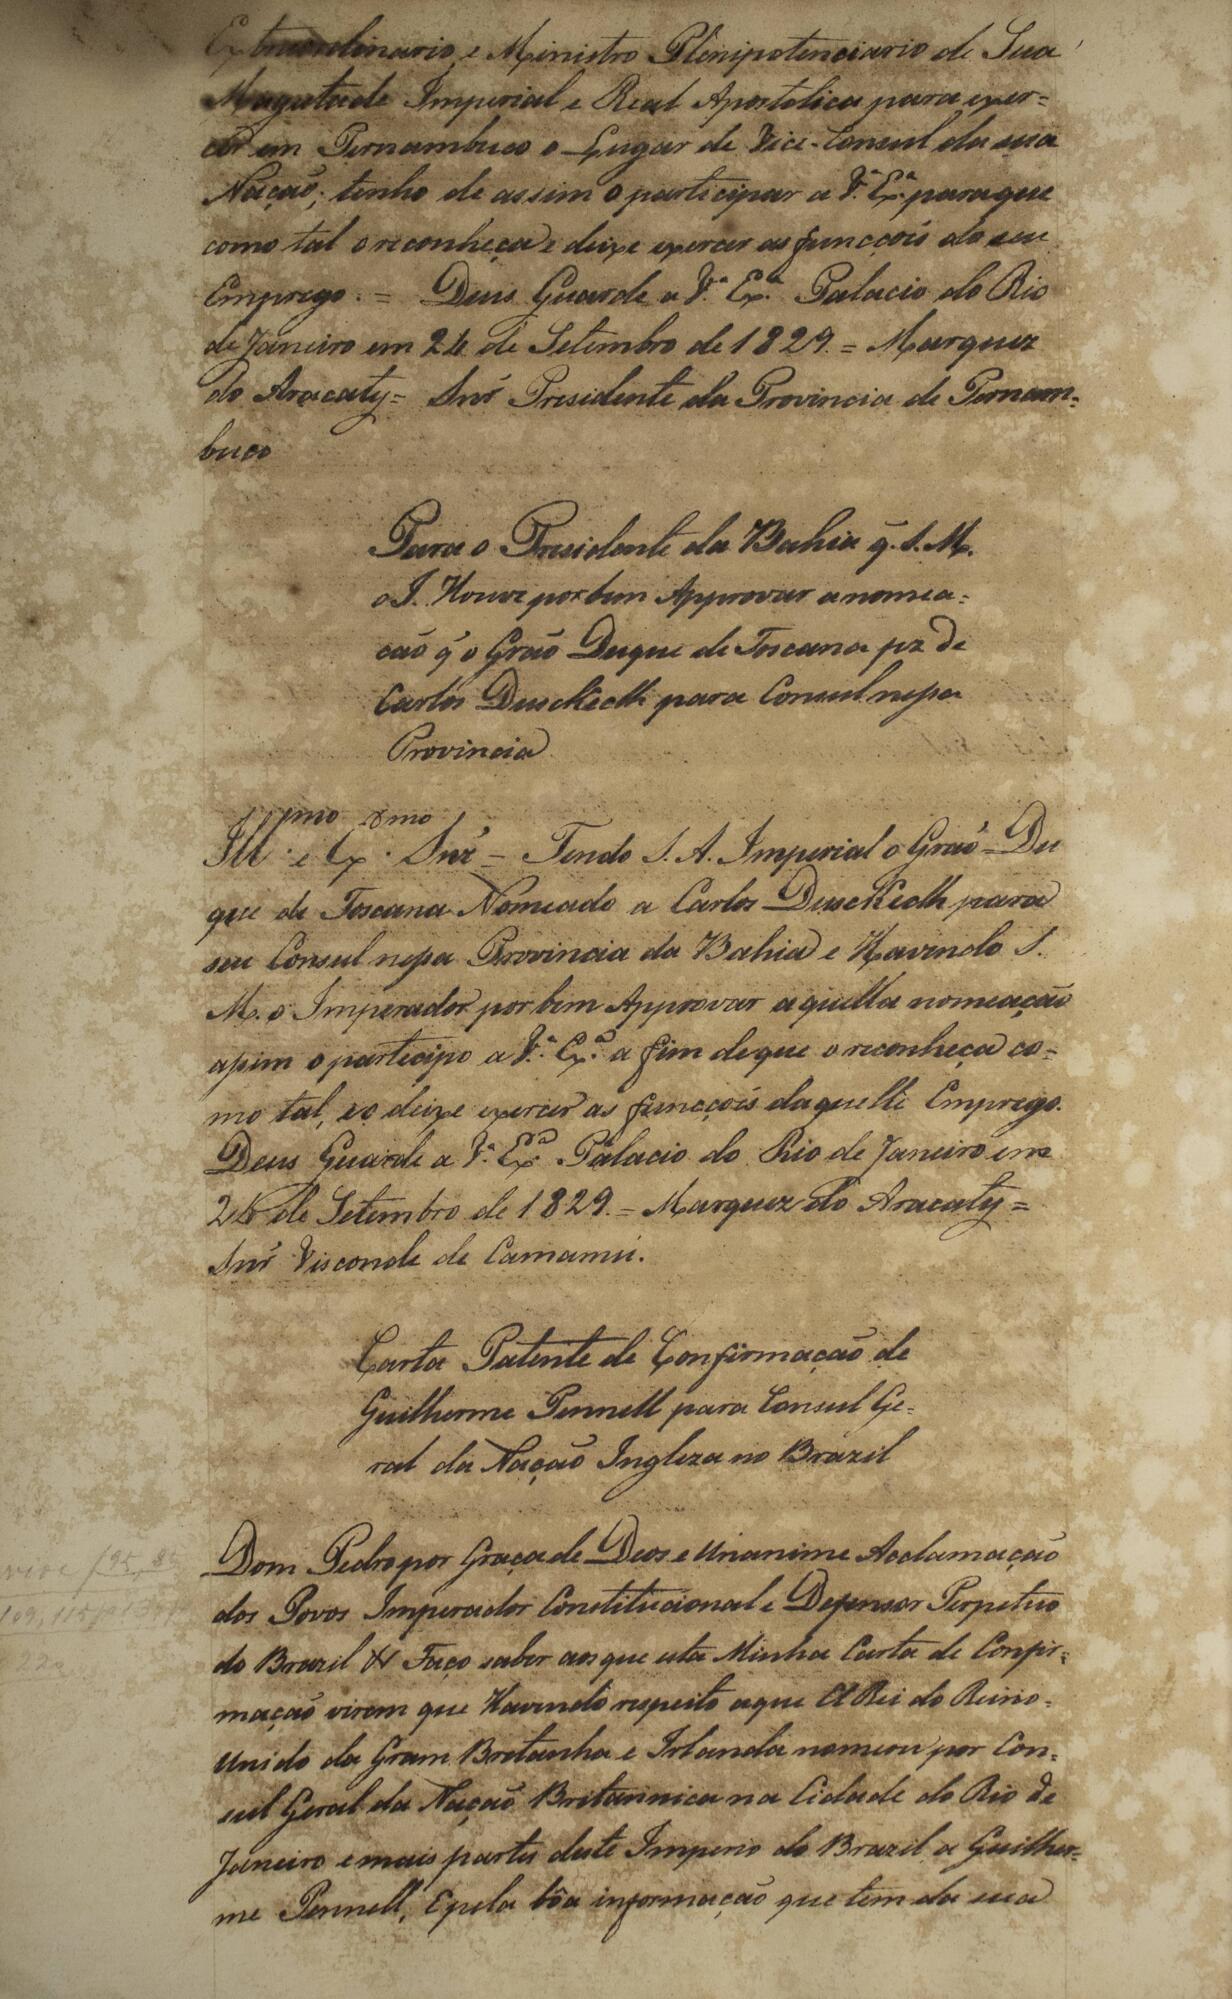 Extraordinario, e Ministro Plenipotenciario de Sua
Magestade Imperial e Real Apostolica para exer=
cer em Pernambuco o Lugar de Vice-Consul da sua
Nação; tenho de assim o participar a V.ª Ex.ª para que
como tal o reconheça e deixe exercer as funcçois do seu
Emprego. = Deus Guarde a V.ª Ex.ª Palacio do Rio
de Janeiro em 24 de Setembro de 1829. = Marquez
do Aracaty = Snr̃ Presidente da Provincia de Pernam=
buco
Para o Presidente da Bahia q̃. S. M.
o I. Houve por bem Approvar a nomea=
cão q̃ o Grão Duque de Toscana fez de
Carlos Dusckecth para Consul nessa
Provincia
Ill.mo e Ex.mo Snr̃ = Tendo S. A. Imperial o Grão Du
que de Toscana Nomeado a Carlos Dusckecth para
seu Consul nessa Provincia da Bahia e Havendo S.
M. o Imperador por bem Approvar aquella nomeação
assim o participo a V.ª Ex.ª a fim de que o reconheça co=
mo tal, e o deixe exercer as funcçois daquelle Emprego.
Deus Guarde a V.ª Ex.ª Palacio do Rio de Janeiro em
26 de Setembro de 1829. = Marquez do Aracaty =
Snr̃ Visconde de Camamú.
Carta Patente de Confirmação de
Guilherme Pennell para Consul Ge=
ral da Nação Ingleza no Brazil
Dom Pedro por Graça de Deos e Unanime Acclamação
dos Povos Imperador Constitucional e Defensor Perpetuo
do Brazil & Faço saber aos que esta Minha Carta de Confir=
mação virem que Havendo respeito aque El Rei do Reino=
Unido da Gram Bretanha e Irlanda nomeou por Con=
sul Geral da Nação Britannica na Cidade do Rio de
Janeiro e mais partes deste Imperio do Brazil a Guilher=
me Pennell, E pela bôa informação que tem da sua